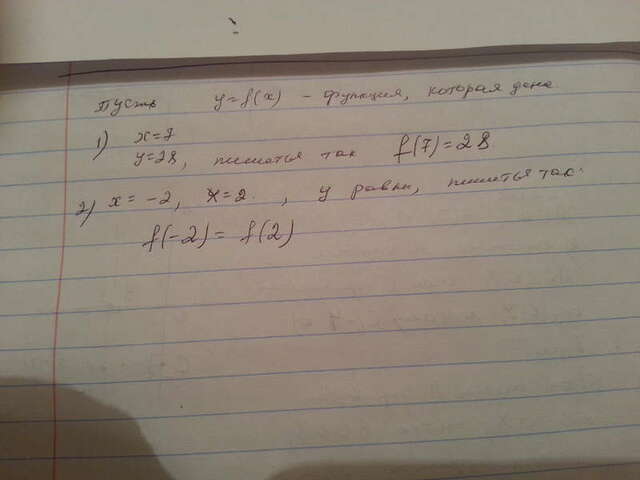 Пусть y=f(x) - функция, которая дана.
1) x=7
y=28, пишеться так f(7)=28
2) x= -2, x=2. , y равны, пишеться так:
f(-2)= f(2)